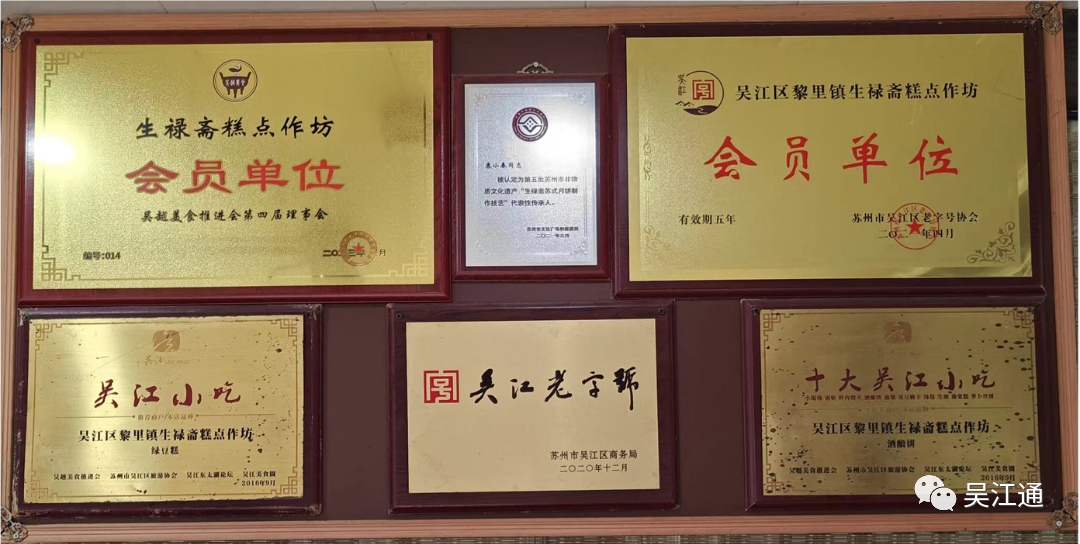 生禄斋糕点作坊
会员单位
吴越美食推进会第四届理事会
编号:014
袁小春同志
被认定为第五批苏州市非物
质文化遗产“生禄斋苏式月饼制
作技艺”代表性传承人。
苏州市文化广电和旅游局
吴江
吴江区黎里镇生禄斋糕点作坊
会员单位
有效期五年
苏州市吴江区老字号协会
二〇二一年四月
吴江
吴江小吃
推荐商户/本店品种
吴江区黎里镇生禄斋糕点作坊
绿豆糕
吴越美食推进会 苏州市吴江区旅游协会 吴江东太湖论坛 吴江美食圈
2016年9月
吴江老字號
苏州市吴江区商务局
二〇二〇年十二月
十大吴江小吃
吴江区黎里镇生禄斋糕点作坊
酒酿饼
吴越美食推进会 苏州市吴江区旅游协会 吴江东太湖论坛 吴江美食圈
2016年9月
吴江通